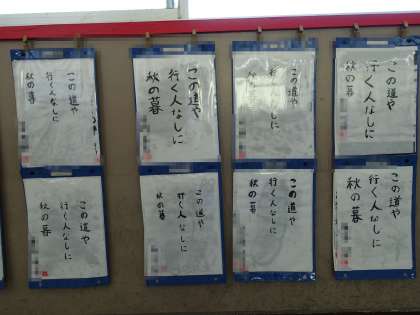 この道や
行く人なしに
秋の暮
この道や
行く人なしに
秋の暮
この道や
行く人なしに
秋の暮
この道や
行く人なしに
秋の暮
この道や
行く人なしに
秋の暮
この道や
行く人なしに
秋の暮
この道や
行く人なしに
秋の暮
この道や
行く人なしに
秋の暮